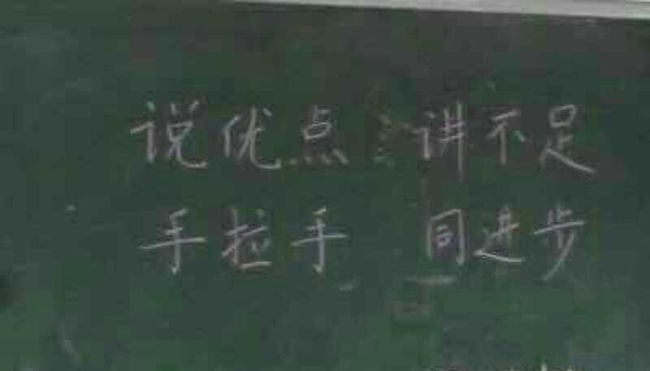 说优点 讲不足
手拉手 同进步